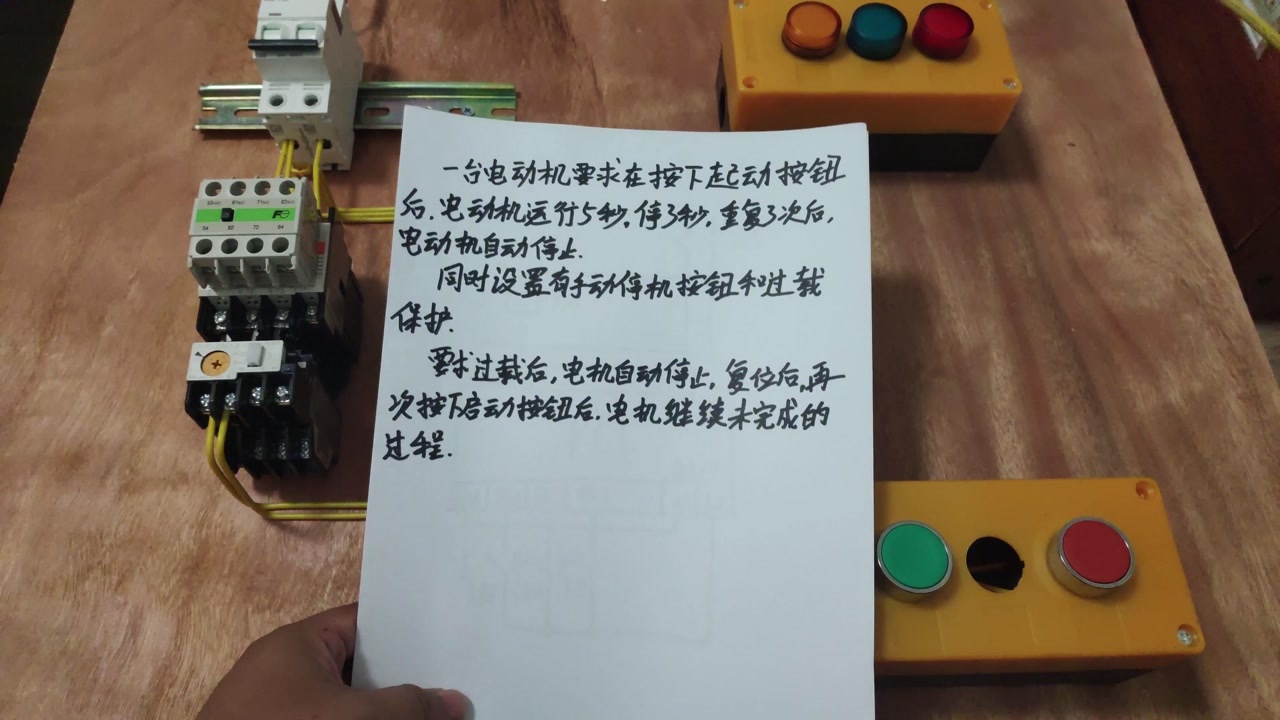 一台电动机要求在按下起动按钮
后.电动机运行5秒,停3秒,重复3次后,
电动机自动停止.
同时设置有手动停机按钮和过载
保护.
要求过载后,电机自动停止,复位后,再
次按下启动按钮后.电机继续未完成的
过程.
Fe
54 62 72 84